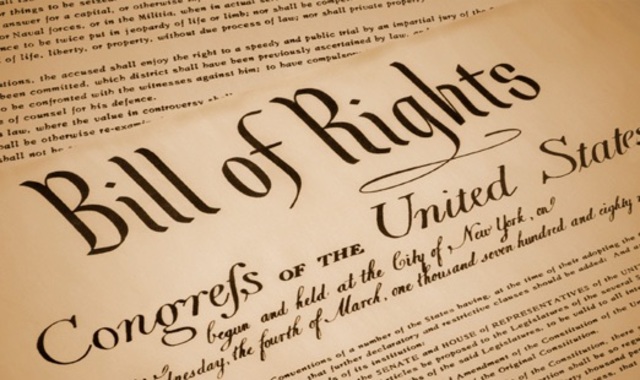 shall be
answer for a capital, or otherwise
or Naval forces, or in the Militia, when in actual
be twice put in jeopardy of life or limb; nor shall be
of life, liberty, or property, without due process of law; nor shall private property
the accused shall enjoy the right to a speedy and public trial by an impartial jury of the
been committed, which district shall have been previously ascertained by law, and
be confronted with the witnesses against him; to have
of counsel for his defence.
law, where the value in controversy
shall be otherwise
shall not be
Bill of Rights
Congreſs OF THE United States
begun and held at the City of New York, on
the fourth of March, one thousand seven hundred and eighty
Conventions of a number of the States having, at the time of their adopting the
that further declaratory and restrictive clauses should be added: And
of its institution:
the SENATE and HOUSE of REPRESENTATIVES of the
be proposed to the Legislatures of the several
of the said Legislatures, to be valid to all
Amendment of the Constitution of the
the Original Constitution.